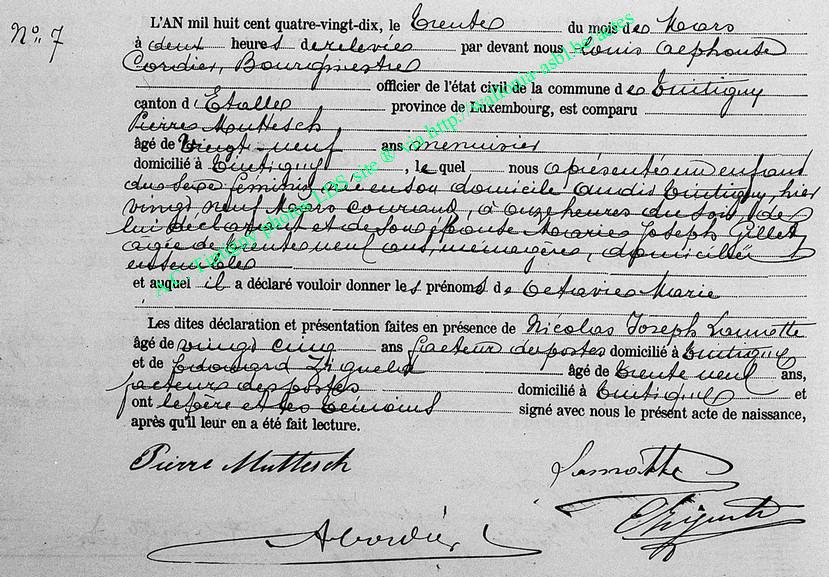 N° 7
L'AN mil huit cent quatre-vingt-dix, le trente du mois de Mars
à deux heures de relevée par devant nous Louis Alphonse
Cordier, Bourgmestre
officier de l'état civil de la commune de Tintigny
canton d'Etalle province de Luxembourg, est comparu
Pierre Muttesch
âgé de vingt-neuf ans menuisier
domicilié à Tintigny, lequel nous a présenté un enfant
du sexe féminin, né en son domicile audit Tintigny, hier
vingt neuf Mars courant, à onze heures du soir, de
lui déclarant et de son épouse Marie Joseph Gillet,
âgée de trente neuf ans, ménagère, domiciliés
ensemble
et auquel il a déclaré vouloir donner les prénoms de Octavie Marie
Les dites déclaration et présentation faites en présence de Nicolas Joseph Lamotte
âgé de vingt cinq ans facteur des postes domicilié à Tintigny
et de Edouard âgé de trente neuf ans,
facteur des postes domicilié à Tintigny et
ont le père et les témoins signé avec nous le présent acte de naissance,
après qu'il leur en a été fait lecture.
Pierre Muttesch
Lamotte
ACordier
A.C. Tintigny photos LDS site ® via http://wallonia-asbl.be/actes